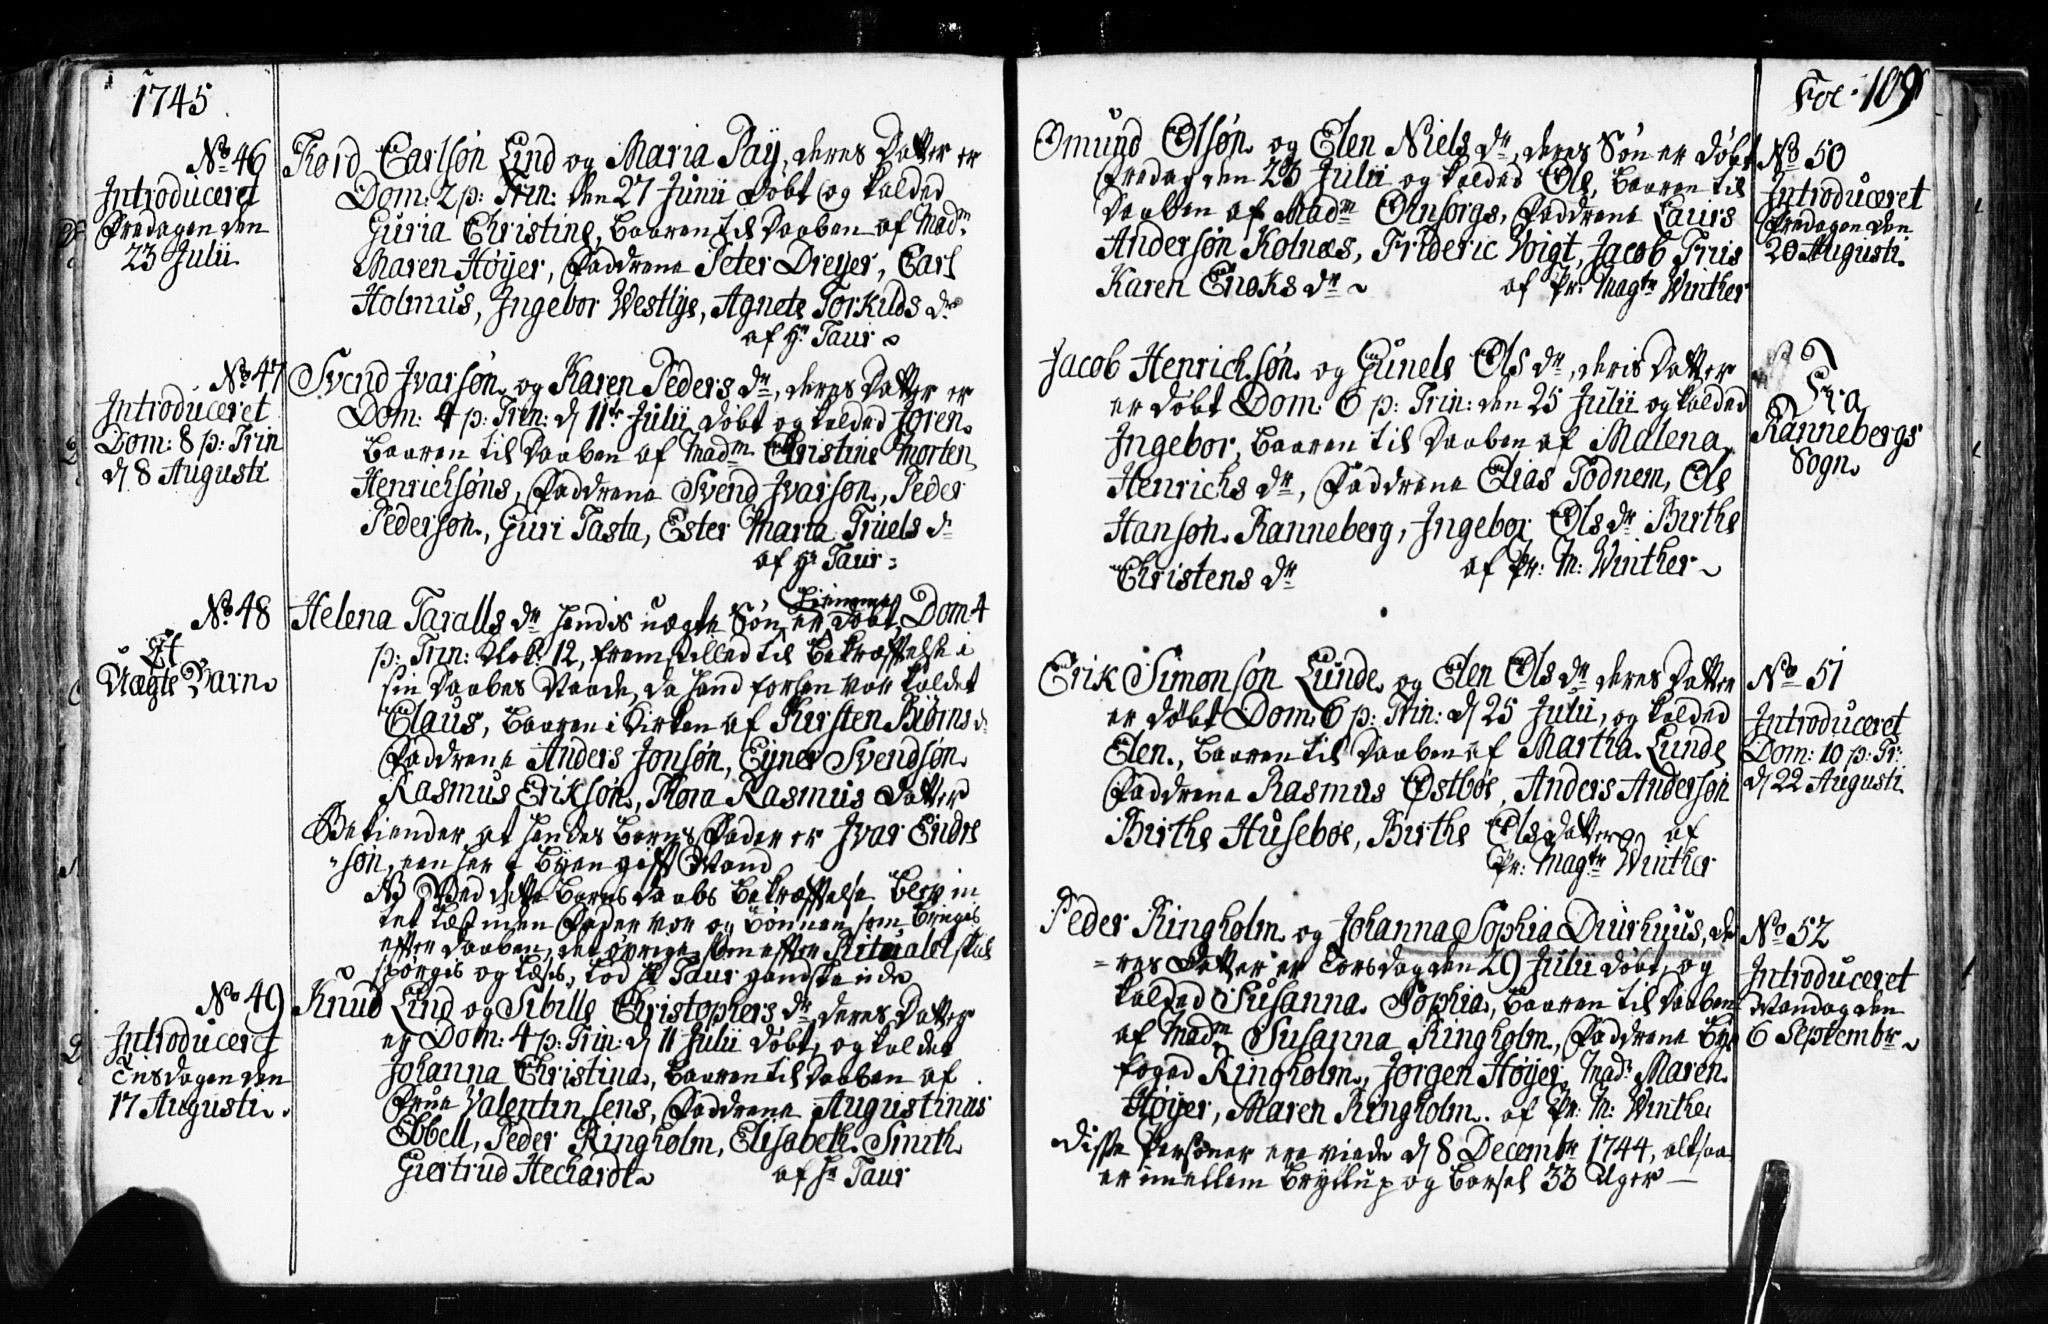 1745
No 46
Introduceret
Fredagen den
23 Julii
Fiord Carlsøn Lind og Maria Pay, deres Datter er
Dom: 2 p: Trin: den 27 Junii døbt og kalded
Guria Christine, baaren til Daaben af Madm
Maren Høyer, Faddrene Peter Dreyer, Carl
Holmus, Ingebor Westlye, Agnete Torkilds dr
af Hr Taur
No 47
Introduceret
Dom: 8 p: Trin
d 8 Augusti
Svend Ivarsøn og Karen Peders dr, deres Datter er
Dom: 4 p: Trin: d 11te Julii døbt og kalded Joren
baaren til Daaben af Madm Christine Morten
Henrichsøns, Faddrene Svend Ivarson, Peder
Pedersøn, Guri Tasta, Ester Marta Truels dr
af Hr Taur
No 48
Et
Uægte Barn
Helena Taralls dr hendis uægte Søn er hiemme døbt, Dom 4
p: Trin: Klok: 12, fremstilled til bekræftelse i
sin Daabes Naade, da hand forhen var kaldet
Claus, baaren i Kirken af Kirsten Biørns dr
Faddrene Anders Jonsøn, Eyner Svendsøn
Rasmus Eriksøn, Thora Rasmus Datter
Bekiender at hendes Barns Fader er Ivar Endre
søn, een her i Byen gift Mand
NB Ved dette Barns Daabs bekræftelse blev in
tet læst uden Fader vor og bønnen som bruges
efter Daaben, det øvrige som efter Ritualet skal
spørgis og læsis, lod Hr Taur gandske inde
No 49
Introduceret
Tisdagen den
17 Augusti
Knud Lind og Sibille Christophers dr, deres Datter
er Dom: 4 p: Trin: d 11 Julii døbt, og kaldet
Johanna Christina, baaren til Daaben af
Frue Valentin sens, Faddrene Augustinus
Ebbell, Peder Ringholm, Elisabeth Smith
Giertrud Hechardt
af Hr Taur
Fol: 109
Omund Olsøn og Elen Niels dr, deres Søn er døbt
Fredag den 23 Julii og kalded Ole, baaren til
Daaben af Madm Oinsorgs, Faddrene Laurs
Andersøn Kolnæs, Frideric Voigt, Jacob Friis
Karen Enoks dr
af Pr: Magtr Winther
No 50
Introduceret
Fredagen den
20 Augusti
Jacob Henrichsøn og Gunele Ols dr, deris Datter
er døbt Dom: 6 p: Trin: den 25 Julii og kalded
Ingebor, baaren til Daaben af Malena
Henrichs dr, Faddrene Elias Todnem, Ole
Hansøn Ranneberg, Ingebor Ols dr Birthe
Christens dr
af Pr: M: Winther
Fra
Rannebergs
Sogn
Erik Simonsøn Lunde og Elen Ols dr deres Datter
er døbt Dom: 6 p: Trin: d 25 Julii, og kalded
Elen, baaren til Daaben af Martha Lunde
Faddrene Rasmus Østbøe, Anders Andersøn
Birthe Husebøe, Birthe Elsdatter af
Pr: Magtr Winther
No 51
Introduceret
Dom: 10 p: Tr:
d 22 Augusti
Peder Ringholm og Johanna Sophia Duurhuus, de
res Datter er Torsdag den 29 Julii døbt, og
kalded Susanna Sophia, baaren til Daaben
af Madm Susanna Ringholm, Faddrene Bye
foged Ringholm, Jørgen Høyer, Mad: Maren
Høyer, Maren Ringholm af Pr: M: Winther
Disse Personer ere viede d 8 Decembr 1744, altsaa
er imellem Bryllup og Barsel 33 Uger
No 52
Introduceret
Mandag den
6 Septembr